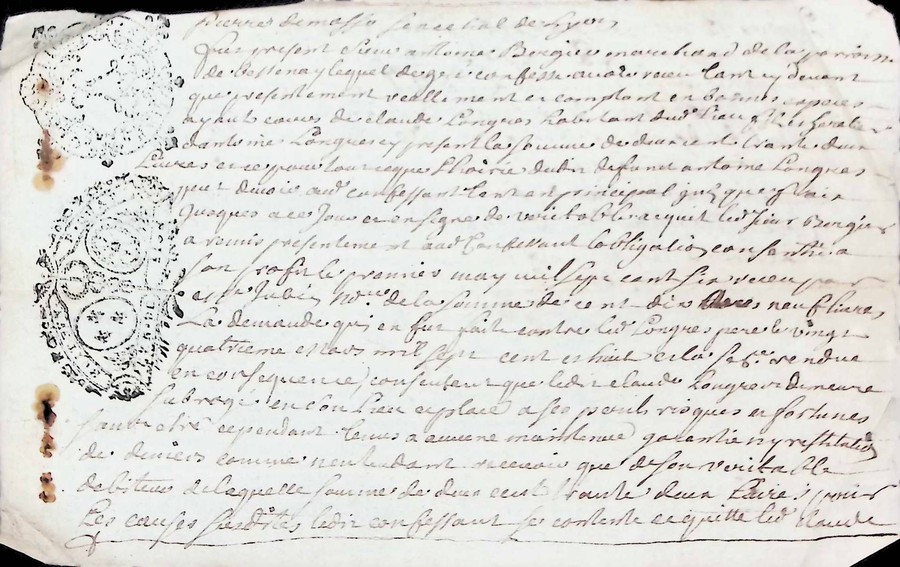 pierres de masso senechal de Lyon,
fut present sieur antoine Bergier marchand de la parroisse
de Bessenay lequel de gré confesse avoir receu tant cy devant
que presentement reallement et comptant en bonnes especes
ayant cours de claude Longres habitant dud. lieu
d'antoine Longres cy present la somme de deux cent trante deux
Livres et ce pour tout ce que l'hoirie dudit defunt antoine Longres
peut devoir aud. confessant tant en principal que frais
Jusques a ce Jour et en signe de veritable acquit led. sieur Bergier
a remis presentement aud. l'obligation consentie a
son profit le premier may mil sept cent six receu par
not.re de la somme de cent dix neuf livres
La demande qui en fut faite contre led. Longres pere le vingt
quatrieme mars mil sept cent et huit et la se.ce rendue
en consequence consentent que ledit claude Longres demeure
subrogé en son lieu et place a ses perils risques et fortunes
sans etre cependant tenus a aucune maintenue garantie ny restitution
de deniers comme n'entendant recevoir que de son veritable
debiteur de laquelle somme de deux cent trante deux Livres pour
Les causes susdites ledit confessant se contente et quitte led. claude